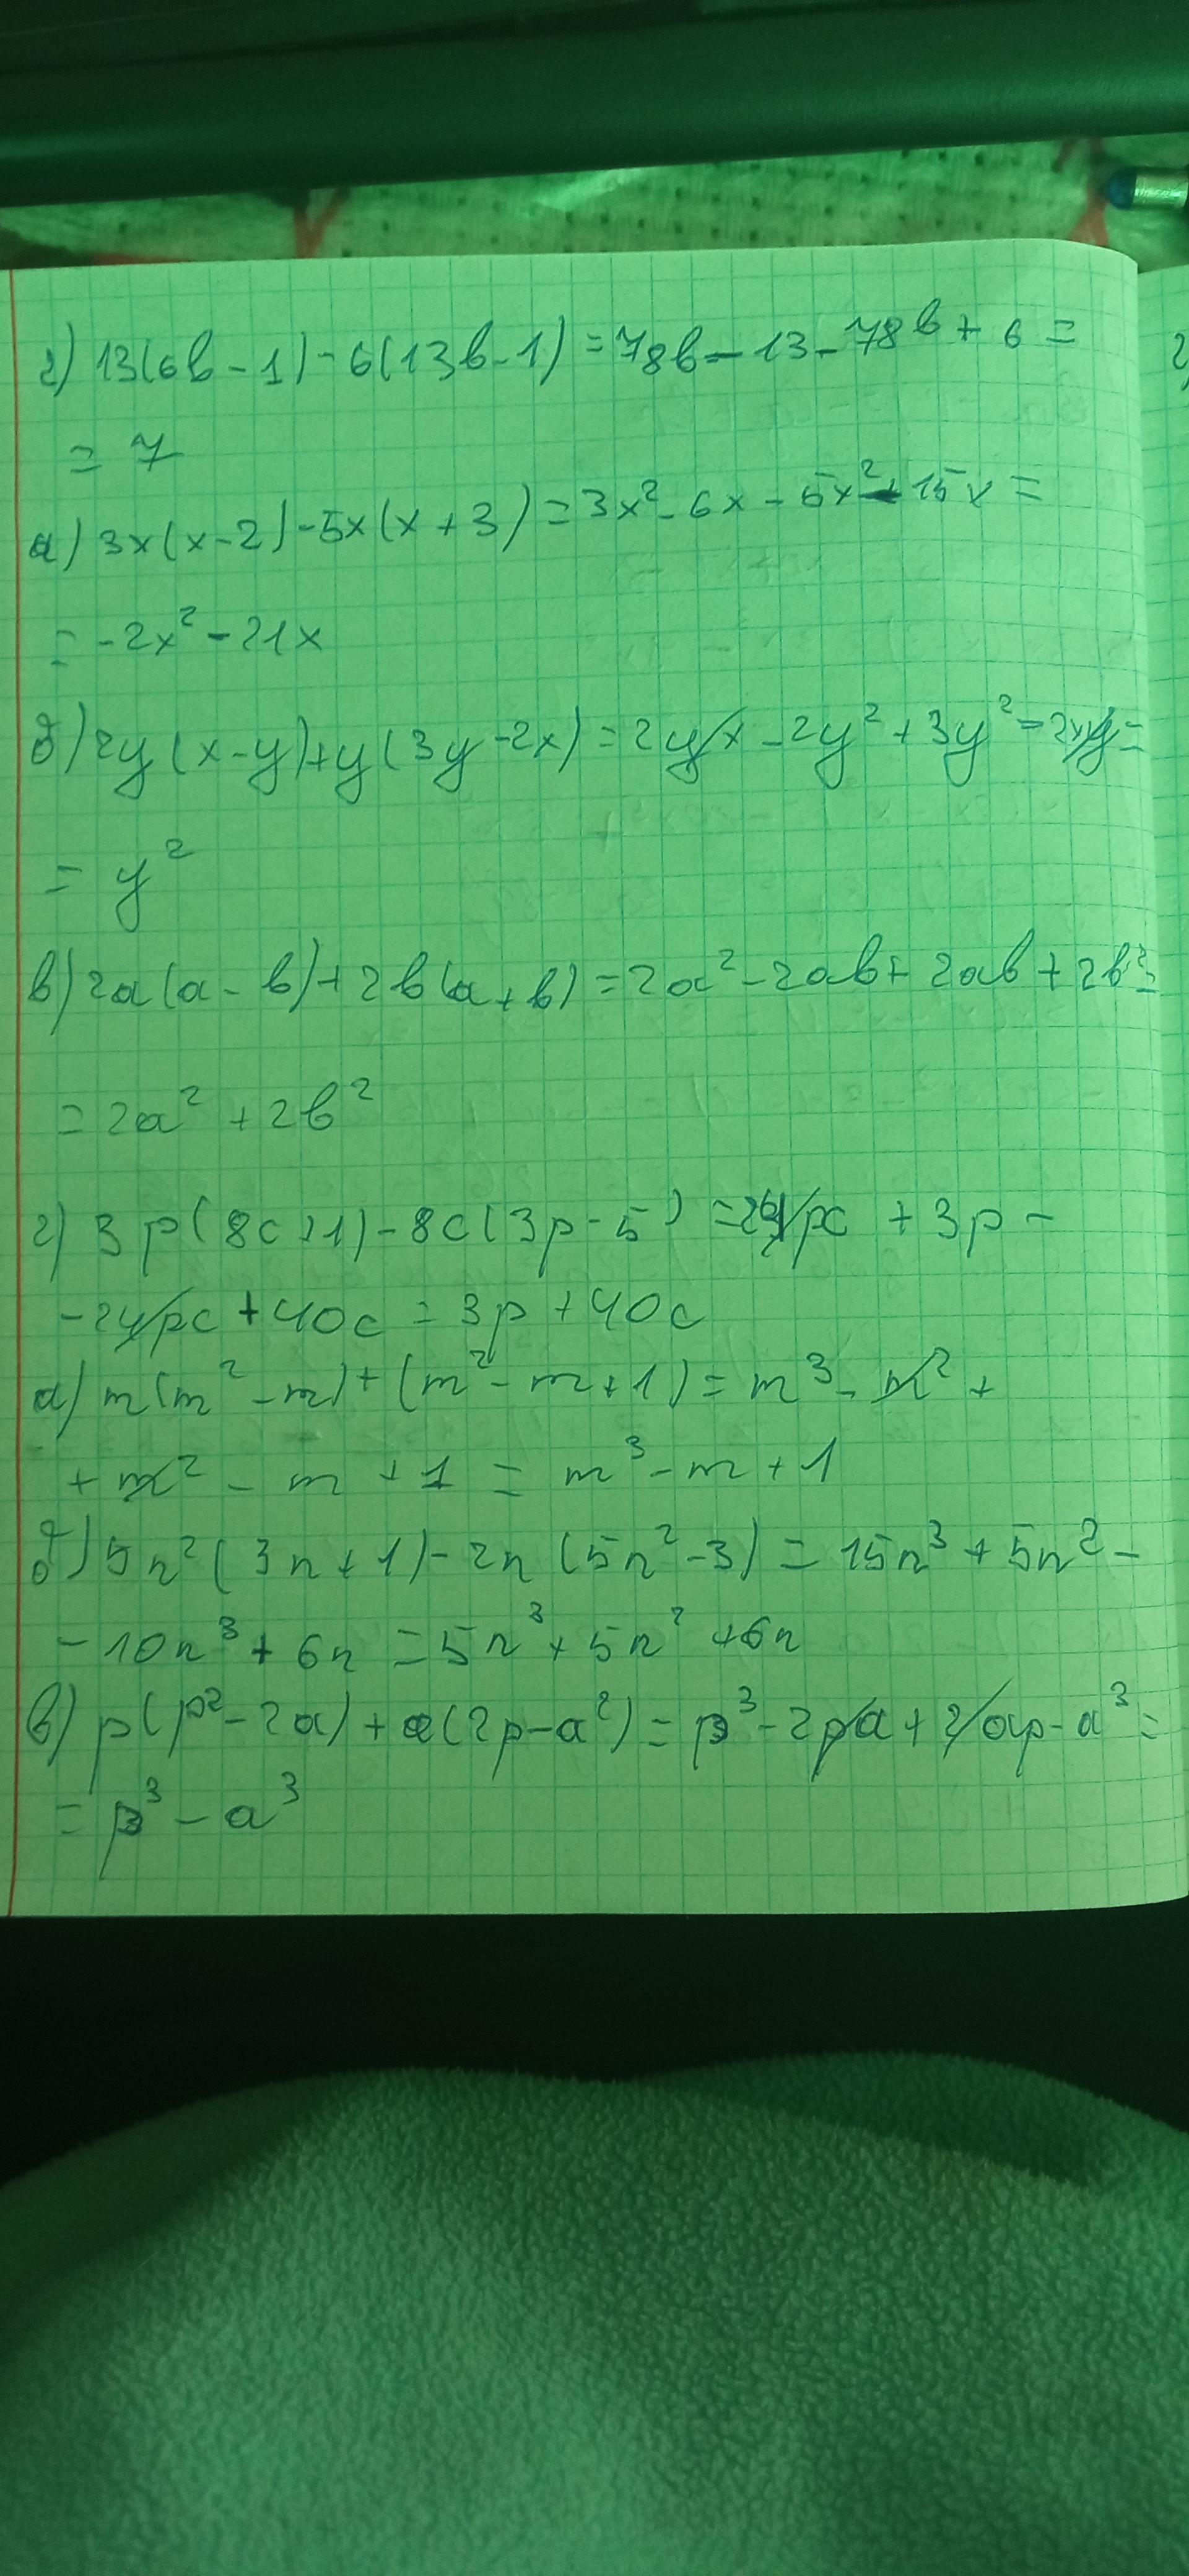 г) 13(6b - 1) - 6(13b - 1) = 78b - 13 - 78b + 6 =
= 7
а) 3x(x - 2) - 5x(x + 3) = 3x² - 6x - 5x² - 15x =
= -2x² - 21x
б) 2y(x - y) + y(3y - 2x) = 2yx - 2y² + 3y² - 2xy =
= y²
в) 2a(a - b) + 2b(a + b) = 2a² - 2ab + 2ab + 2b² =
= 2a² + 2b²
г) 3p(8c + 1) - 8c(3p - 5) = 24pc + 3p -
- 24pc + 40c = 3p + 40c
а) m(m² - m) + (m² - m + 1) = m³ - m² +
+ m² - m + 1 = m³ - m + 1
б) 5n²(3n + 1) - 2n(5n² - 3) = 15n³ + 5n² -
- 10n³ + 6n = 5n³ + 5n² + 6n
в) p(p² - 2a) + a(2p - a²) = p³ - 2pa + 2ap - a³ =
= p³ - a³